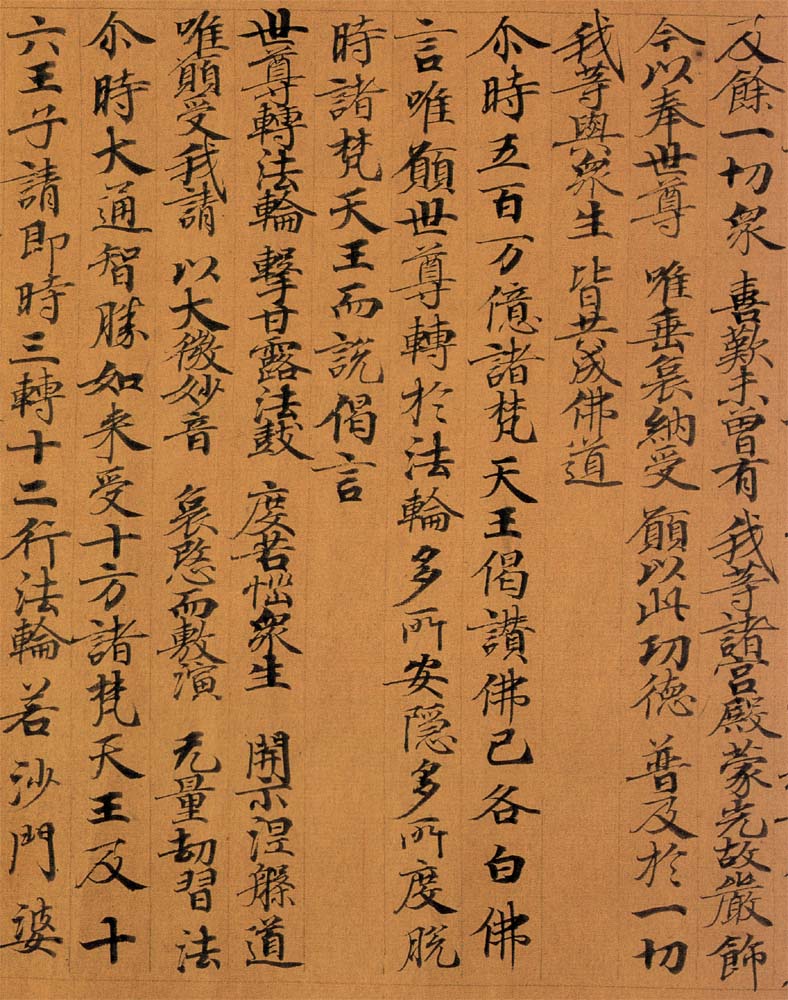 及餘一切衆　喜歎未曾有　我等諸宮殿　蒙光故嚴飾
今以奉世尊　唯垂哀納受　願以此功德　普及於一切
我等與衆生　皆共成佛道
尒時五百万億諸梵天王偈讃佛已各白佛
言唯願世尊轉於法輪多所安隱多所度脱
時諸梵天王而説偈言
世尊轉法輪　擊甘露法鼓　度苦惱衆生　開示涅槃道
唯願受我請　以大微妙音　哀愍而敷演　无量劫習法
尒時大通智勝如来受十方諸梵天王及十
六王子請即時三轉十二行法輪若沙門婆